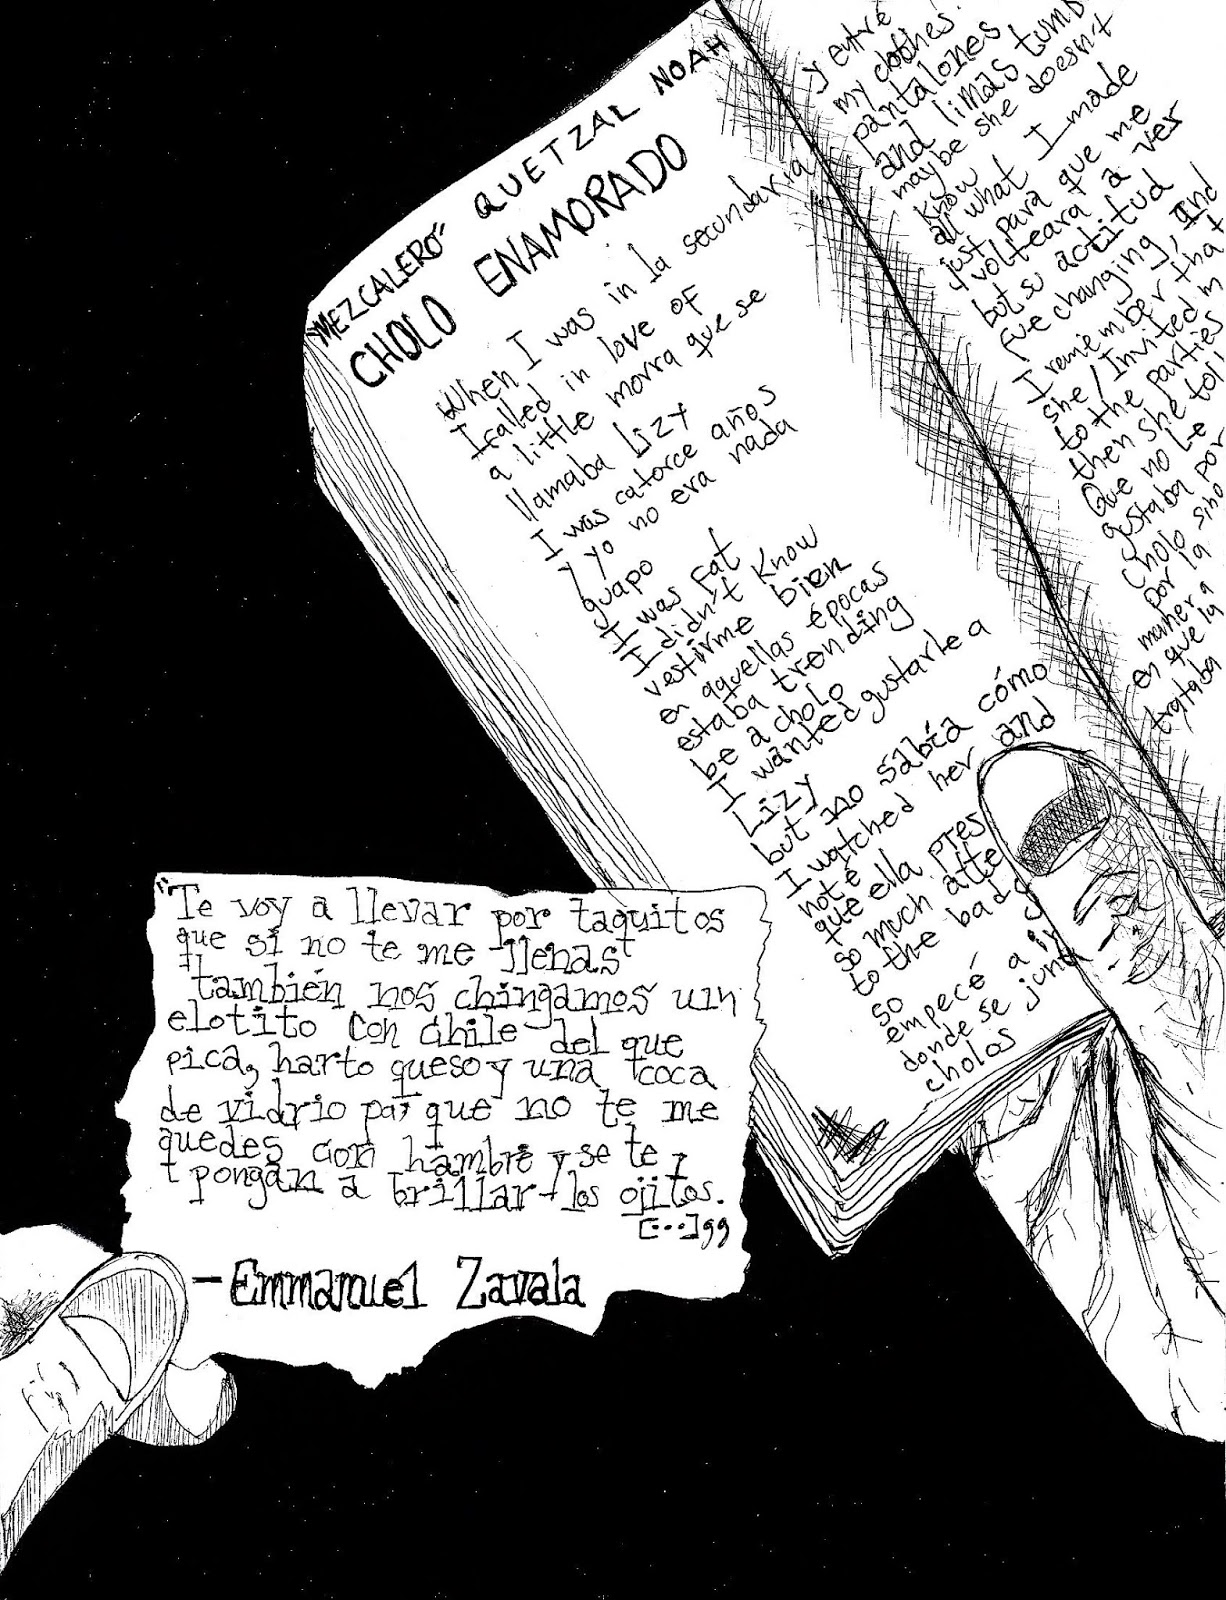 MEZCALERO- QUETZAL NOAH
CHOLO ENAMORADO
When I was in la secundaria
I falled in love of
a little morra que se
llamaba Lizy
I was catorce años
y yo no era nada
guapo
I was Fat
I didn't Know
vestirme bien
en aquellas épocas
estaba trending
be a cholo
I wanted gustarle a
Lizy
but no sabía cómo
I watched her and
noté
que ella pres
so much atte
to the bad
so
empecé a ir
donde se junt
cholos
y entré
my clothes.
pantalones
and limas tumb
maybe she doesn't
Know
all what I made
just para que me
volteara a ver
but su actitud
fue changing, And
I remember that
she/Invited m
to the parties
then she tol
Que no Le
gustaba por
cholo sino
por la
manera
en que la
trataba
"Te voy a llevar por taquitos
que si no te me llenas
también nos chingamos un
elotito con chile del que
pica, harto queso y una coca
de vidrio pa' que no te me
quedes con hambre y se te
pongan a brillar los ojitos.
[...]"
-Emmanuel Zavala